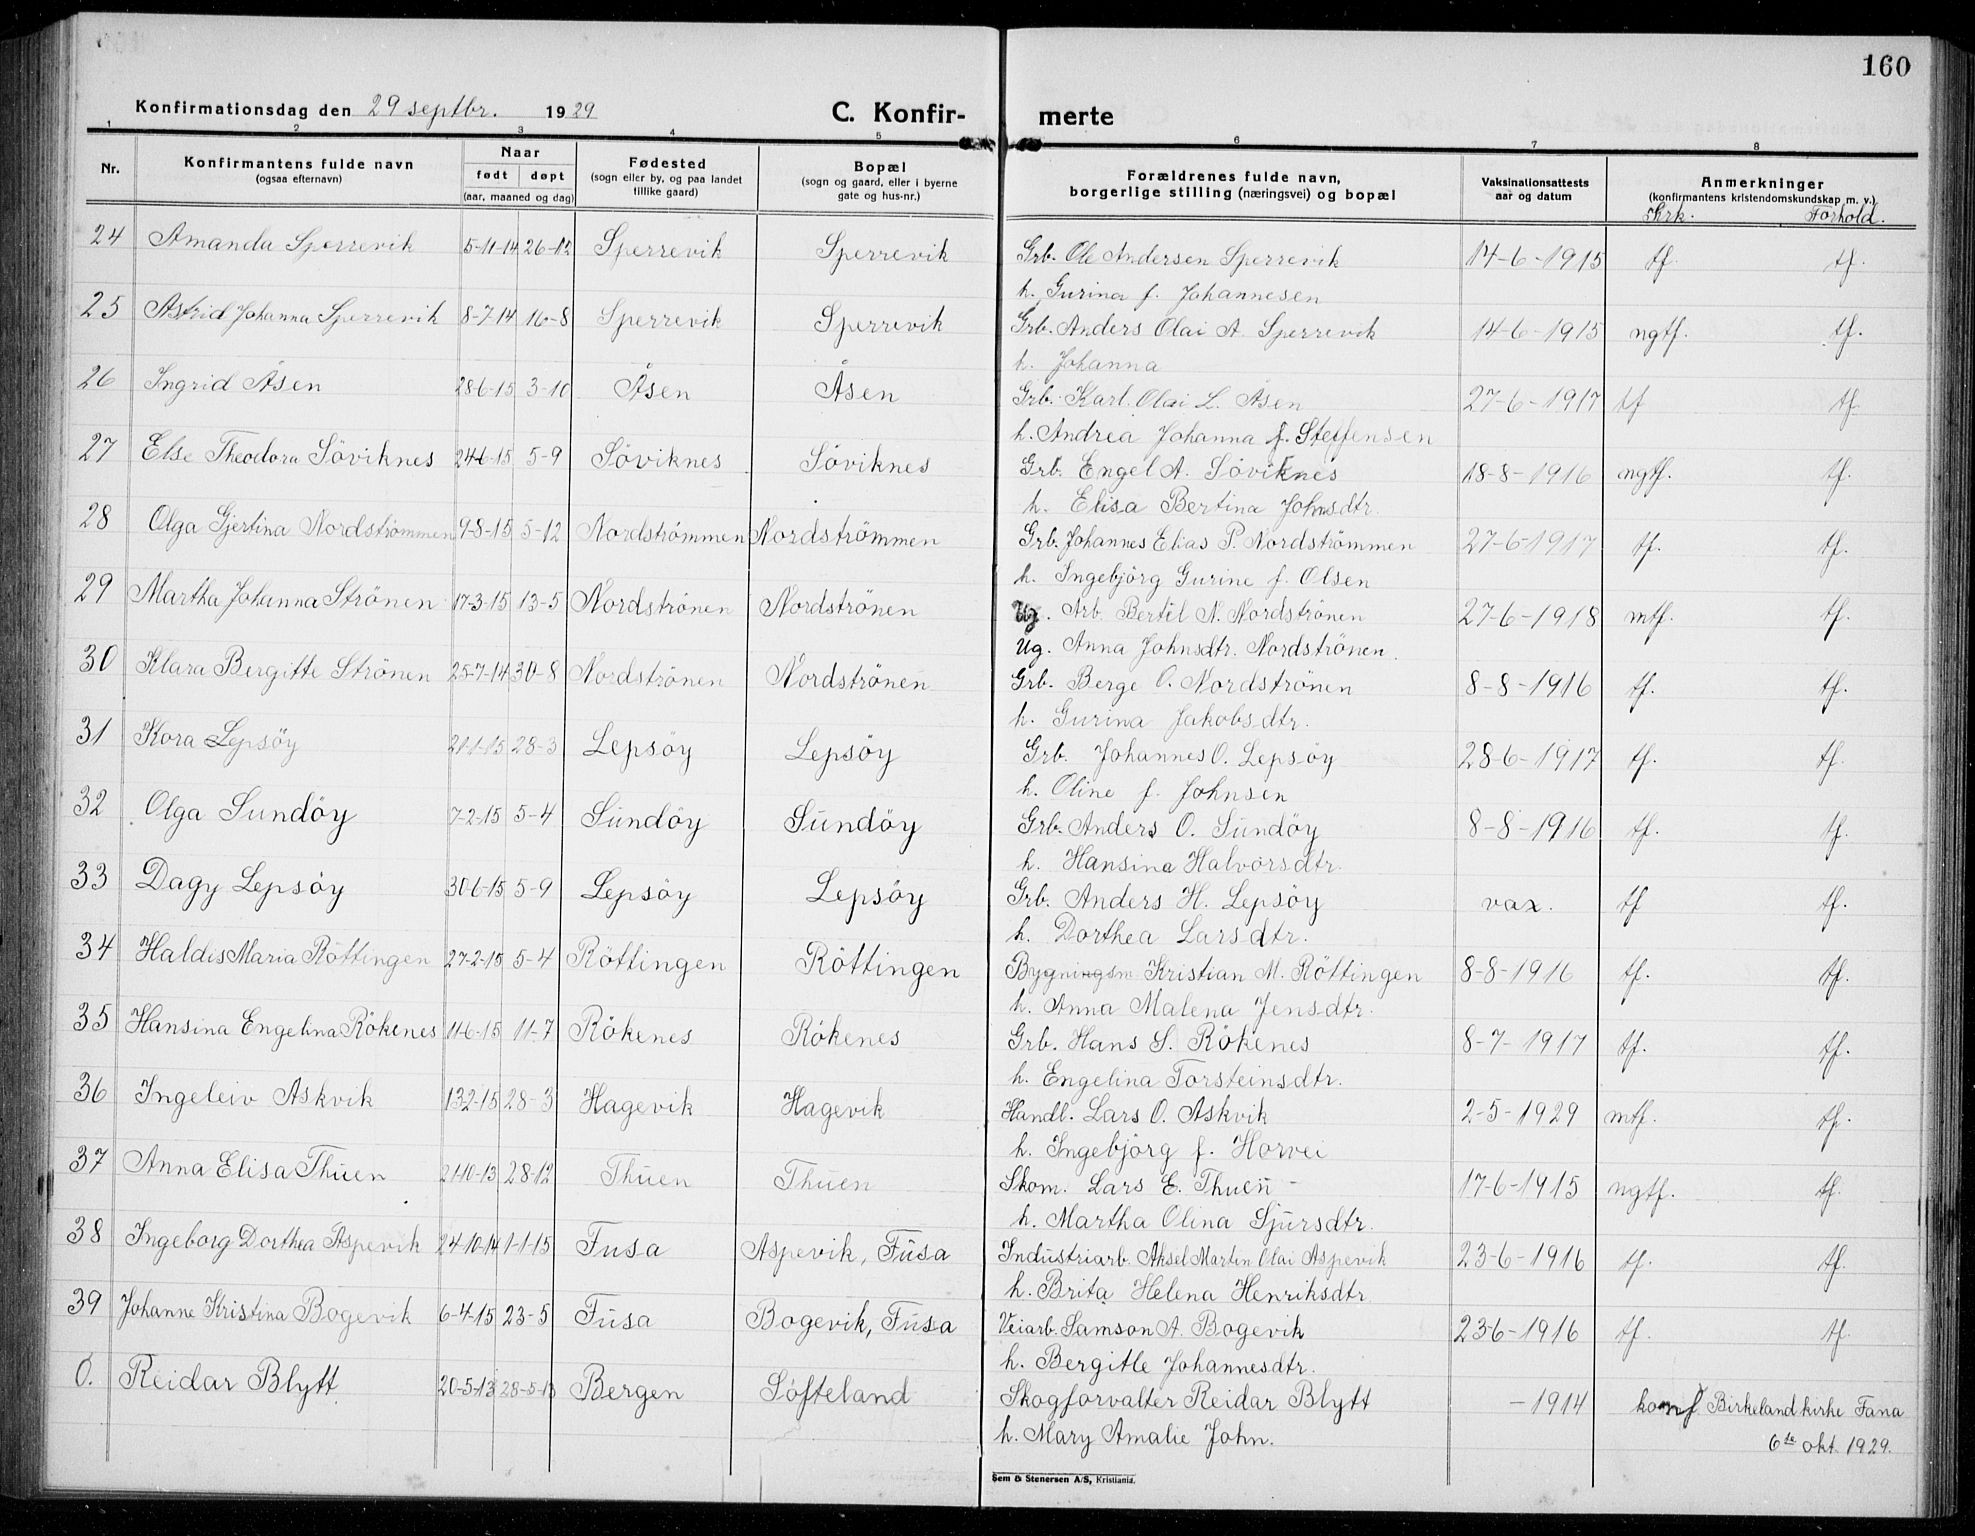 160
Konfirmationsdag den 29 septbr. 1929 C. Konfir- merte
1 2 3 4 5 6 7 8
Nr. Konfirmantens fulde navn (ogsaa efternavn) Naar født døpt (aar, maaned og dag) Fødested (sogn eller by, og paa landet tillike gaard) Bopæl (sogn og gaard, eller i byerne gate og hus-nr.) Forældrenes fulde navn, borgerlige stilling (næringsvei) og bopæl Vaksinationsattests aar og datum Anmerkninger (konfirmantens kristendomskundskap m. v.)
Krk. Forhold.
24 Amanda Sperrevik 5-11-14 26-12 Sperrevik Sperrevik Grb. Ole Andersen Sperrevik 14-6-1915 tf. tf.
h. Gurina f. Johannesen
25 Astrid Johanna Sperrevik 8-7-14 16-8 Sperrevik Sperrevik Grb. Anders Olai A. Sperrevik 14-6-1915 ngtf. tf.
h. Johanna
26 Ingrid Åsen 28-6-15 3-10 Åsen Åsen Grb. Karl Olai L. Åsen 27-6-1917 tf tf.
h. Andrea Johanna f. Steffensen
27 Else Theodora Söviknes 24-6-15 5-9 Söviknes Söviknes Grb. Engel A. Söviknes 18-8-1916 ngtf. tf.
h. Elisa Bertina Johnsdtr.
28 Olga Gjertina Nordströmmen 9-8-15 5-12 Nordströmmen Nordströmmen Grb. Johannes Elias P. Nordströmmen 27-6-1917 tf. tf.
h. Ingebjörg Gurine f. Olsen
29 Martha Johanna Strönen 17-3-15 13-5 Nordströnen Nordströnen Ug. Arb. Bertil N. Nordströnen 27-6-1918 mtf. tf.
Ug. Anna Johnsdtr. Nordströnen.
30 Klara Bergitte Strönen 25-7-14 30-8 Nordströnen Nordströnen Grb. Berge O. Nordströnen 8-8-1916 tf. tf.
h. Gurina Jakobsdtr.
31 Kora Lepsöy 21-1-15 28-3 Lepsöy Lepsöy Grb. Johannes O. Lepsöy 28-6-1917 tf. tf.
h. Oline f. Johnsen
32 Olga Sundöy 7-2-15 5-4 Sundöy Sundöy Grb. Anders O. Sundöy 8-8-1916 tf. tf.
h. Hansina Halvorsdtr.
33 Dagy Lepsöy 30-6-15 5-9 Lepsöy Lepsöy Grb. Anders H. Lepsöy vax. tf tf.
h. Dorthea Larsdtr.
34 Haldis Maria Röttingen 27-2-15 5-4 Röttingen Röttingen Bygningsm. Kristian M. Röttingen 8-8-1916 tf. tf.
h. Anna Malena Jensdtr.
35 Hansina Engelina Rökenes 11-6-15 11-7 Rökenes Rökenes Grb. Hans S. Rökenes 8-7-1917 tf. tf.
h. Engelina Torsteinsdtr.
36 Ingeleiv Askvik 13-2-15 28-3 Hagevik Hagevik Handl. Lars O. Askvik 2-5-1929 mtf. tf.
h. Ingebjörg f. Horvei
37 Anna Elisa Thuen 21-10-13 28-12 Thuen Thuen Skom. Lars E. Thuen 17-6-1915 ngtf. tf.
h. Martha Olina Sjursdtr.
38 Ingeborg Dorthea Aspevik 24-10-14 1-1-15 Fusa Aspevik, Fusa Industriarb. Aksel Martin Olai Aspevik 23-6-1916 tf. tf.
h. Brita Helena Henriksdtr.
39 Johanne Kristina Bogevik 6-4-15 23-5 Fusa Bogevik, Fusa Veiarb. Samson A. Bogevik 23-6-1916 tf. tf.
h. Bergitte Johannesdtr.
0. Reidar Blytt 20-5-13 28-5-13 Bergen Söfteland Skogforvalter Reidar Blytt -1914 konf. Birkeland kirke Fana
h. Mary Amalie John. 6te okt. 1929.
Sem & Stenersen A/S, Kristiania.